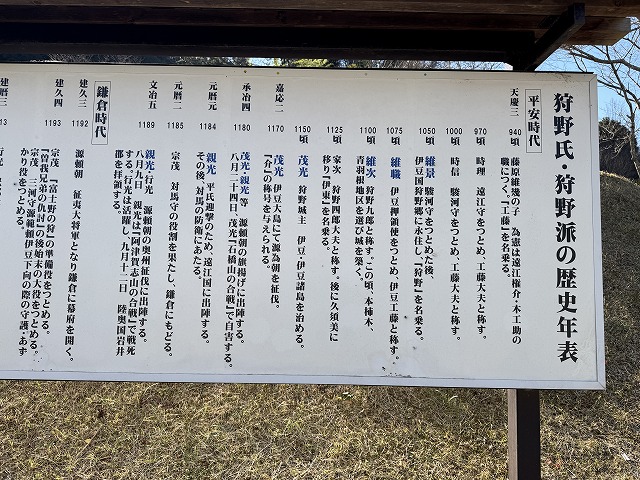 狩野氏・狩野派の歴史年表
平安時代
天慶三 940頃 藤原維幾の子 為憲は遠江権介・木工助の
職につく、「工藤」を名乗る。
970頃 時理 遠江守をつとめ、工藤大夫と称す。
1000頃 時信 駿河守をつとめ、工藤大夫と称す。
1050頃 維景 駿河守をつとめた後、
伊豆国狩野郷に永住し、「狩野」を名乗る。
1075頃 維職 伊豆押領使をつとめ、伊豆工藤と称す。
1100頃 維次 狩野九郎と称す。この頃、本柿木、
青羽根地区を選び城を築く。
1125頃 家次 狩野四郎大夫と称す。後に久須美に
移り「伊東」を名乗る。
1150頃 茂光 狩野城主 伊豆・伊豆諸島を治める。
嘉応二 1170 茂光 伊豆大島にて源為朝を征伐。
「介」の称号を与えられる。
承治四 1180 茂光・親光等 源頼朝の旗揚げに出陣する。
八月二十四日、茂光「石橋山の合戦」で自害する。
元暦元 1184 親光 平氏追撃のため、遠江国に出陣する。
その後、対馬の防衛にあたる。
元暦二 1185 宗茂 対馬守の役割を果たし、鎌倉にもどる。
文治五 1189 親光・行光 源頼朝の奥州征伐に出陣する。
八月九日 親光は「阿津賀志山の合戦」で戦死
する。行光は活躍し、九月十二日 陸奥国岩井
郡を拝領する。
鎌倉時代
建久三 1192 源頼朝 征夷大将軍となり鎌倉に幕府を開く。
建久四 1193 宗茂 「富士野の狩」の準備役をつとめる。
「曽我兄弟の仇討」の後始末の大役をつとめる。
宗茂 三河守源範頼伊豆下向の際の守護・あず
かり役をつとめる。
建暦三
行光